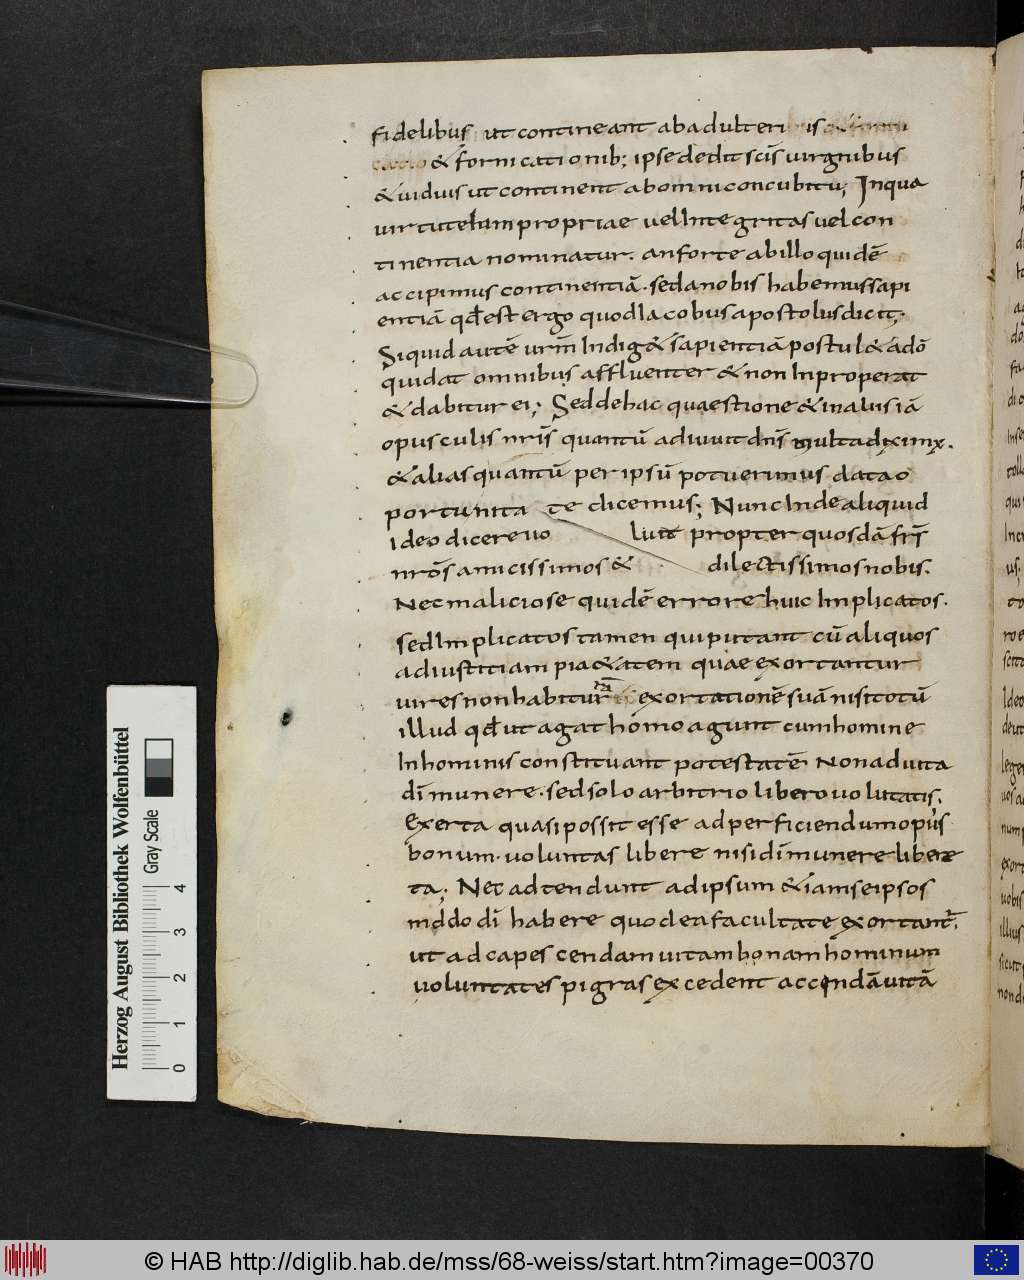 fidelibus ut contineant ab adulteriis
& fornicationib; ipse dedit scīs virginibus
& viduis ut contineant ab omni concubitu; In qua
virtute tam propriae vel integritas vel con
tinentia nominatur. an forte ab illo quidē
accipimus continentiā. sed a nobis habemus sapi
entiā qđ est ergo quod Iacobus apostolus dicit;
Siquid autē urm̄ Indig& sapientiā postul& a dō
qui dat omnibus affluenter & non Inproperat
& dabitur ei; Sed de hac quaestione & in aliis iā
opusculis nrīs quantū adiuvit dn̄s multa diximus.
& alias quantū per ipsū potuerimus data o
portunitate dicemus; Nunc Inde aliquid
Ideo dicere volui propter quosdā frīs
nrōs amicissimos & dilectissimos nobis.
Nec maliciose quidē errore huic Implicatos.
sed Implicatos tamen qui putant cū aliquos
ad iustitiam pia& atem quae exortantur
vires non habitur exortationē suā nisi totū
illud qđ ut agat homo agunt cum homine
In hominis constituant potestatē Non aduta
dī munere. sed solo arbitrio libero volutatis.
Exerta quasi possit esse ad perficiendum opus
bonum. voluntas libere nisi dī munere libere
ta; Nec adtendunt ad ipsum & iam se ipsos
dī habere quod ea facultate exortant.
ut ad capescendam vitam bonam hominum
voluntates pigras excedent accendā vitā
Herzog August Bibliothek Wolfenbüttel
Gray Scale
0 1 2 3 4
© HAB http://diglib.hab.de/mss/68-weiss/start.htm?image=00370